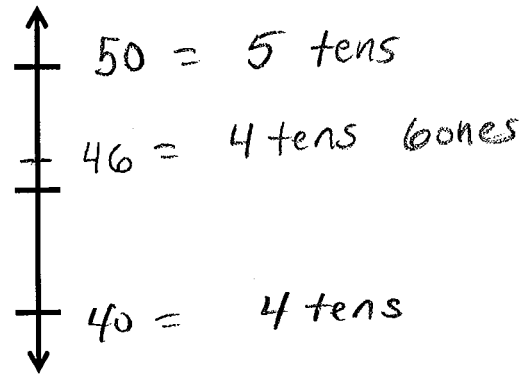 50 = 5 tens
46 = 4 tens 6ones
40 = 4 tens